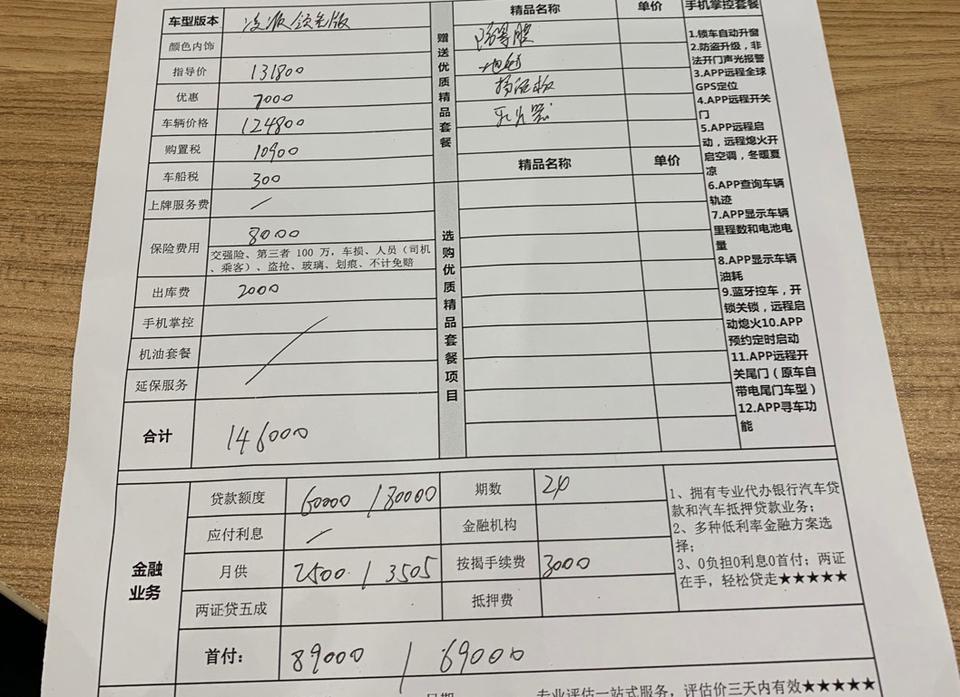 车型版本 凌派领先版
颜色内饰
指导价 131800
优惠 7000
车辆价格 124800
购置税 10900
车船税 300
上牌服务费 /
保险费用 8000
交强险、第三者 100 万，车损、人员（司机
、乘客）、盗抢、玻璃、划痕、不计免赔
出库费 2000
手机掌控
机油套餐
延保服务
合计 146000
赠送优质精品套餐
精品名称 单价
防爆膜
地毯
挡泥板
灭火器
选购优质精品套餐项目
精品名称 单价
手机掌控套餐
1.锁车自动升窗
2.防盗升级，非
法开门声光报警
3.APP远程全球
GPS定位
4.APP远程开关
门
5.APP远程启
动，远程熄火开
启空调，冬暖夏
凉
6.APP查询车辆
轨迹
7.APP显示车辆
里程数和电池电
量
8.APP显示车辆
油耗
9.蓝牙控车，开
锁关锁，远程启
动熄火10.APP
预约定时启动
11.APP远程开
关尾门（原车自
带电尾门车型）
12.APP寻车功
能
金融
业务
贷款额度 60000 / 80000 期数 24
应付利息 / 金融机构
月供 2500 / 3505 按揭手续费 3000
两证贷五成 抵押费
首付： 89000 / 69000
1、拥有专业代办银行汽车贷
款和汽车抵押贷款业务；
2、多种低利率金融方案选
择；
3、0负担0利息0首付；两证
在手，轻松贷走★★★★★
专业评估一站式服务，评估价三天内有效★★★★★